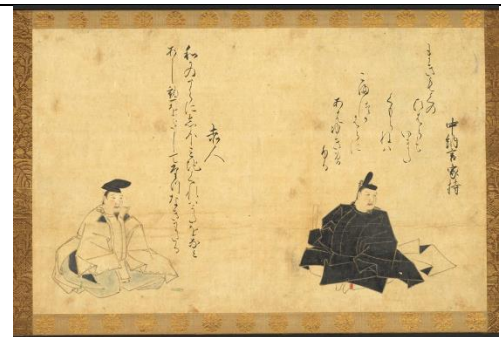 中納言家持
まきもくの
ひはらも
いまた
くもらねは
こ松か
はらに
あは雪そ
ふる
赤人
和かのうらに志ほみちくれはかたをなみ
あし邊をさしてたつなきわたる